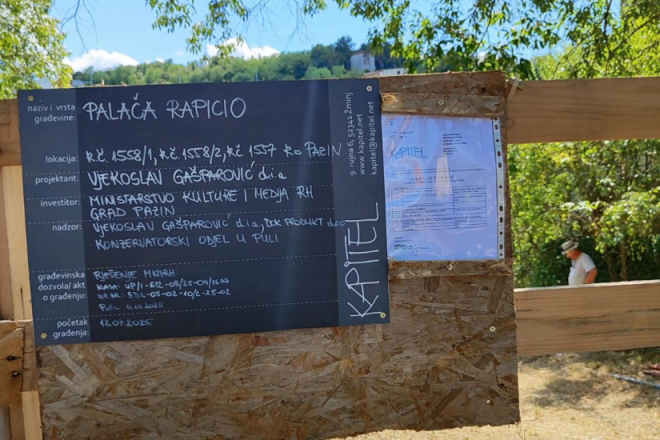 naziv i vrsta građevine: PALAČA RAPICIO
lokacija: k.č. 1558/1, k.č. 1558/2, k.č 1557 k.o PAZIN
projektant: VJEKOSLAV GAŠPAROVIĆ d.i.a
investitor: MINISTARSTVO KULTURE I MEDIJA RH
GRAD PAZIN
nadzor: VJEKOSLAV GAŠPAROVIĆ d.i.a, DOK PRODUKT doo
KONZERVATORSKI ODJEL U PULI
građevinska dozvola/ akt o građenju: RJEŠENJE MKMRH
KLASA: UP/I-612-08/25-04/1677
UR.BR: 532-05-02-10/2-25-02
Pula, 11.07.2025
početak građenja: 12.07.2025.
KAPITEL
9. rujna 6, 52341 Žminj
www.kapitel.net
kapitel@kapitel.net
KAPITEL